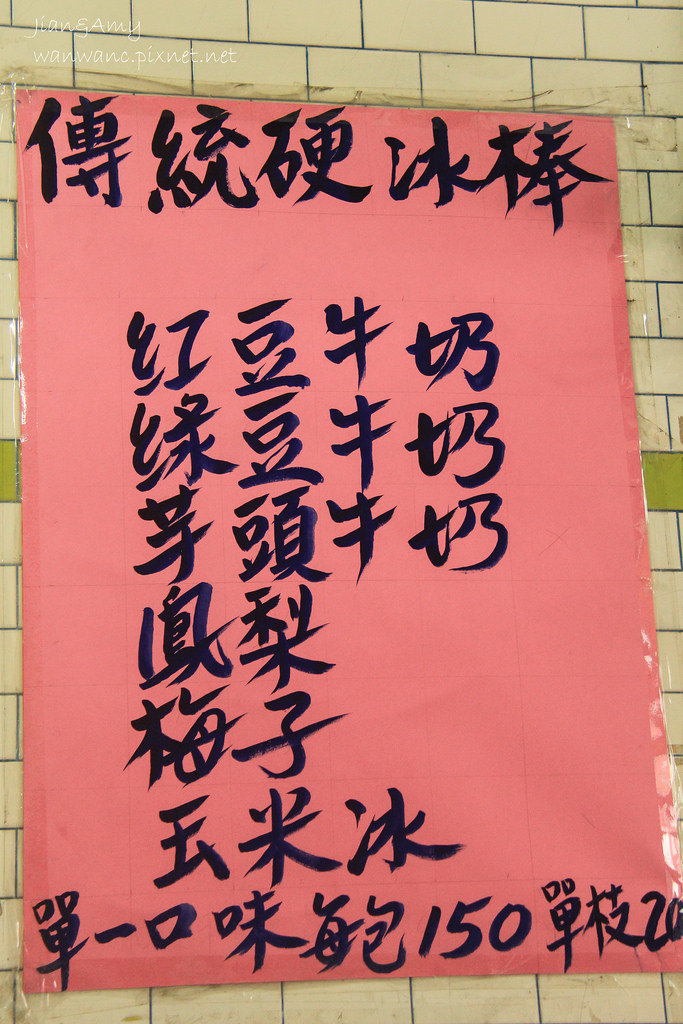 Jian&Amy
wanwanc.pixnet.net
傳統硬冰棒
红豆牛奶
绿豆牛奶
芋頭牛奶
鳳梨
梅子
玉米冰
單一口味每包150 單枝20